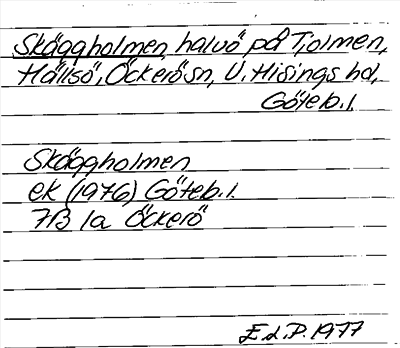 Skäggholmen, halvö på Tjolmen,
Hällsö, Öckerö sn, V. Hisings hd,
Göteb. l.
Skäggholmen
ek (1976) Göteb. l.
7B 1a Öckerö
1977